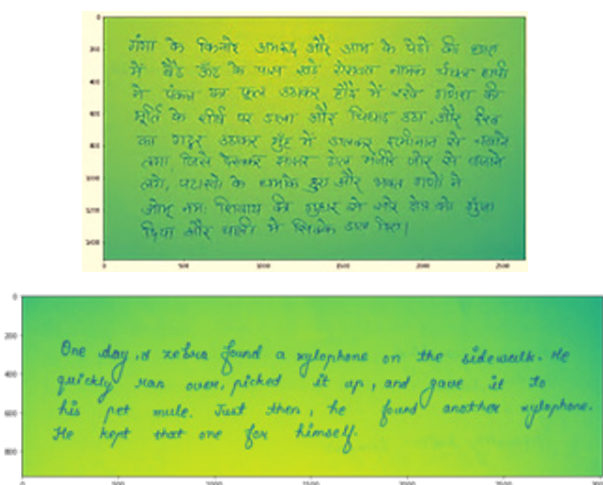 गंगा के किनारे अमरूद और आम के पेड़ों की छाया
में बैठे ऊँट के पास खड़े ऐरावत नामक चंचल हाथी
ने पंकज का फूल उठाकर हौदे में रखे गणेश की
मूर्ति के शीर्ष पर डाला और चिंघाड़ उठा, और ईख
का गट्ठर उठाकर मुँह में डालकर इत्मीनान से चबाने
लगा, जिसे देखकर ढोल मंजीरे जोर से बजाने
लगे, पटाखों के धमाके हुए और भक्त गणों ने
ओम् नमः शिवाय की से क्षेत्र को गुँजा
दिया और थाली में सिक्के डाल दिए।
One day, a zebra found a xylophone on the sidewalk. He
quickly ran over, picked it up, and gave it to
his pet mule. Just then, he found another xylophone.
He kept that one for himself.